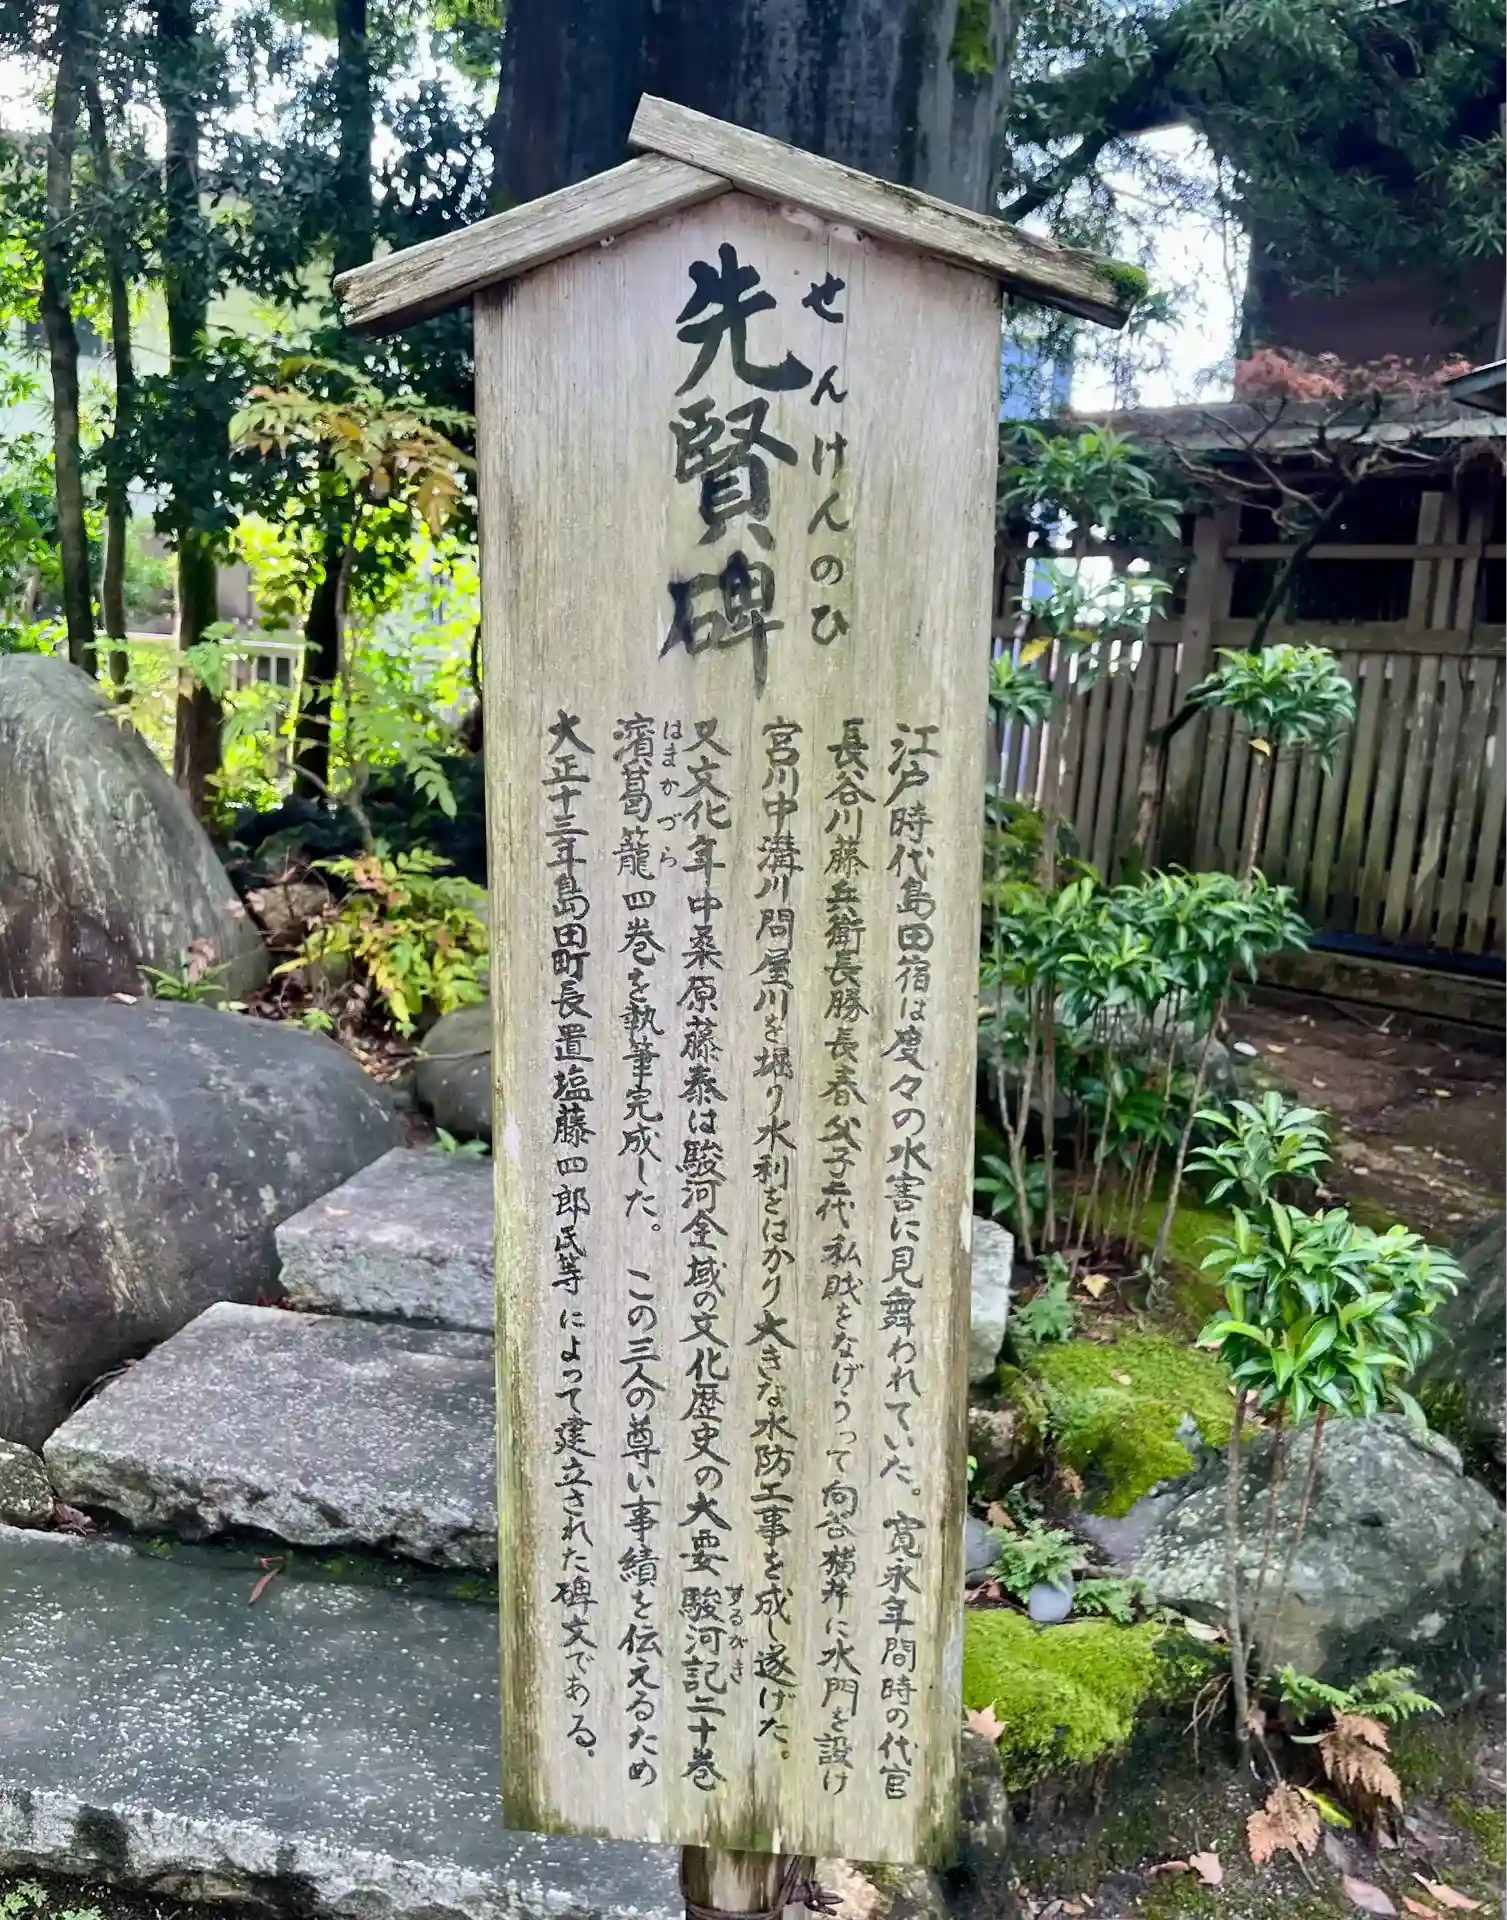 先賢碑
せんけんのひ
江戸時代島田宿は度々の水害に見舞われていた。寛永年間時の代官
長谷川藤兵衛長勝長春父子二代私財をなげうって向谷横井に水門を設け
宮川中溝川問屋川を堀り水利をはかり大きな水防工事を成し遂げた。
又文化年中桑原藤泰は駿河全域の文化歴史の大要駿河記二十巻
するがき
濱葛籠四巻を執筆完成した。この三人の尊い事績を伝えるため
はまかづら
大正十三年島田町長置塩藤四郎氏等によって建立された碑文である、